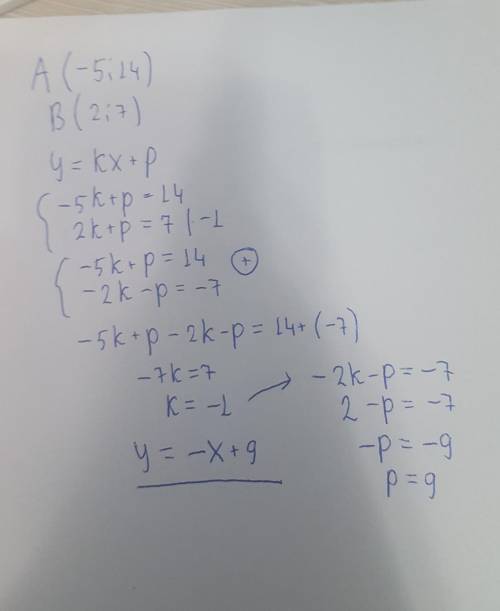 A (-5;14)
B (2;7)
y = kx + p
-5k+p = 14
2k+p = 7 | -1
-5k+p = 14 (+)
-2k-p = -7
-5k+p-2k-p = 14+(-7)
-7k=7
k = -1
y = -x+9
-2k-p = -7
2-p = -7
-p = -9
p = 9